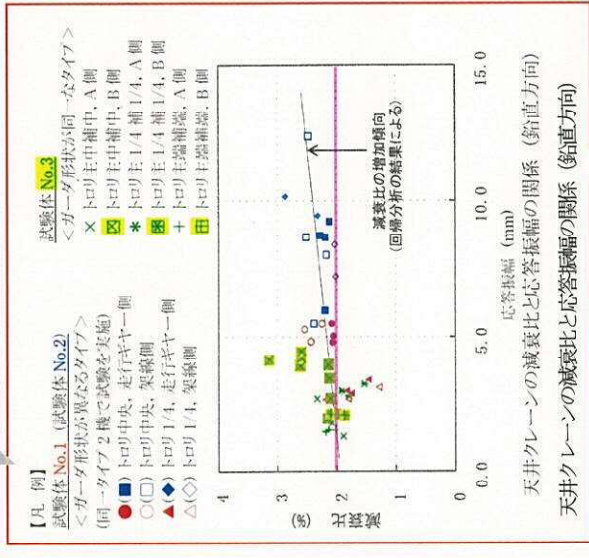 【凡 例】
試験体 No.1 (試験体 No.2)
＜ガーダ形状が異なるタイプ＞
(同一タイプ 2 機で試験を実施)
●(■) トロリ中央, 走行ギヤー側
○(□) トロリ中央, 架線側
▲(◆) トロリ 1/4, 走行ギヤー側
△(◇) トロリ 1/4, 架線側
試験体 No.3
＜ガーダ形状が同一なタイプ＞
× トロリ主中補中, A 側
トロリ主中補中, B 側
* トロリ主 1/4 補 1/4, A 側
トロリ主 1/4 補 1/4, B 側
+ トロリ主端補端, A 側
トロリ主端補端, B 側
減衰比 (%)
4
3
2
1
0
減衰比の増加傾向
(回帰分析の結果による)
0.0
5.0
10.0
15.0
応答振幅 (mm)
天井クレーンの減衰比と応答振幅の関係 (鉛直方向)
天井クレーンの減衰比と応答振幅の関係 (鉛直方向)